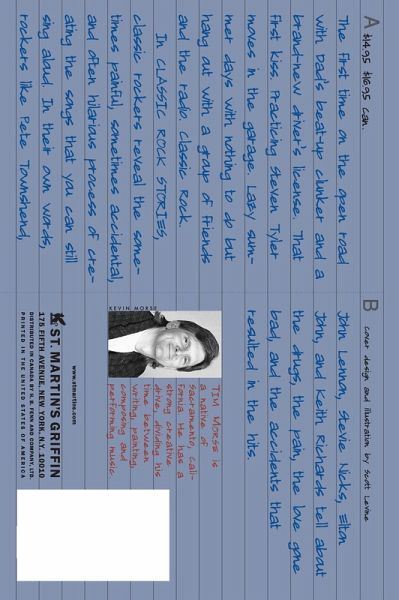 A $14.95 $16.95 Can.
The first time on the open road
with Dad's beat-up clunker and a
brand-new driver's license. That
first kiss. Practicing Steven Tyler
moves in the garage. Lazy sum-
mer days with nothing to do but
hang out with a group of friends
and the radio. Classic Rock.
In CLASSIC ROCK STORIES,
classic rockers reveal the some-
times painful, sometimes accidental,
and often hilarious process of cre-
ating the songs that you can still
sing aloud. In their own words,
rockers like Pete Townshend,
B cover design and illustration by Scott Levine
John Lennon, Stevie Nicks, Elton
John, and Keith Richards tell about
the drugs, the pain, the love gone
bad, and the accidents that
resulted in the hits.
KEVIN MORSE
TIM MORSE is
a native of
Sacramento, Cali-
fornia. He has a
strong creative
drive, dividing his
time between
writing, painting,
composing and
performing music.
www.stmartins.com
ST. MARTIN'S GRIFFIN
175 FIFTH AVENUE, NEW YORK, N.Y. 10010
DISTRIBUTED IN CANADA BY H.B. FENN AND COMPANY, LTD.
PRINTED IN THE UNITED STATES OF AMERICA